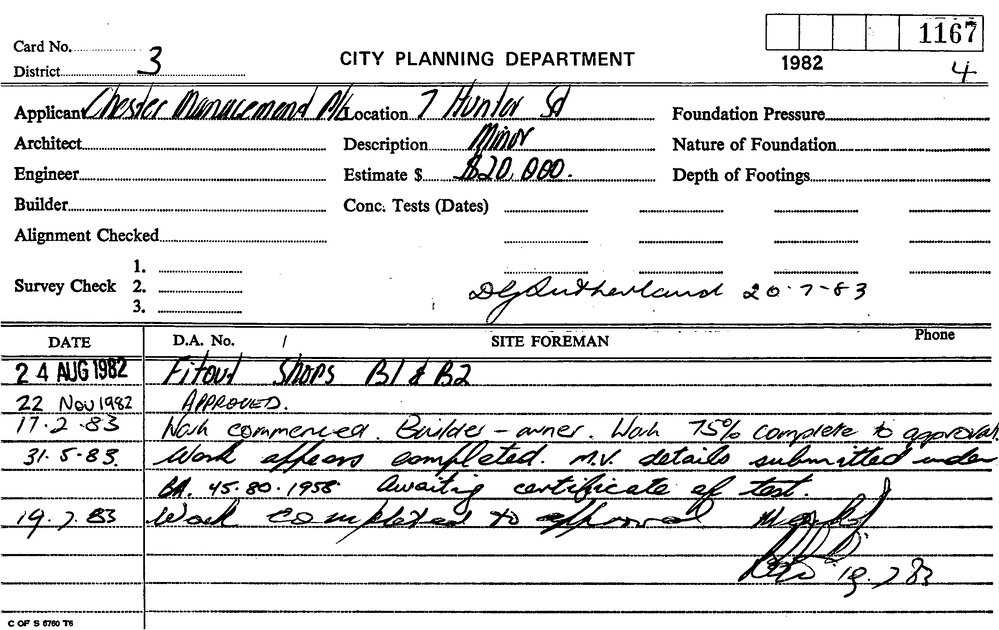 1167
Card No.
CITY PLANNING DEPARTMENT
1982
4
District 3
Applicant Chester Management P/L Location 7 Hunter St Foundation Pressure
Architect Description Minor Nature of Foundation
Engineer Estimate $ $20,000. Depth of Footings
Builder Conc. Tests (Dates)
Alignment Checked
1.
Survey Check 2. DG Sutherland 20.7.83
3.
DATE D.A. No. / SITE FOREMAN Phone
24 AUG 1982 Fitout Shops B1 & B2
22 Nov 1982 APPROVED.
17.2.83 Work commenced. Builder - owner. Work 75% complete to approval.
31.5.83. Work appears completed. M.V. details submitted under
BA. 45.80.1958 Awaiting certificate of test.
19.7.83 Work completed to approval
19.7.83
C OF S 6760 T6